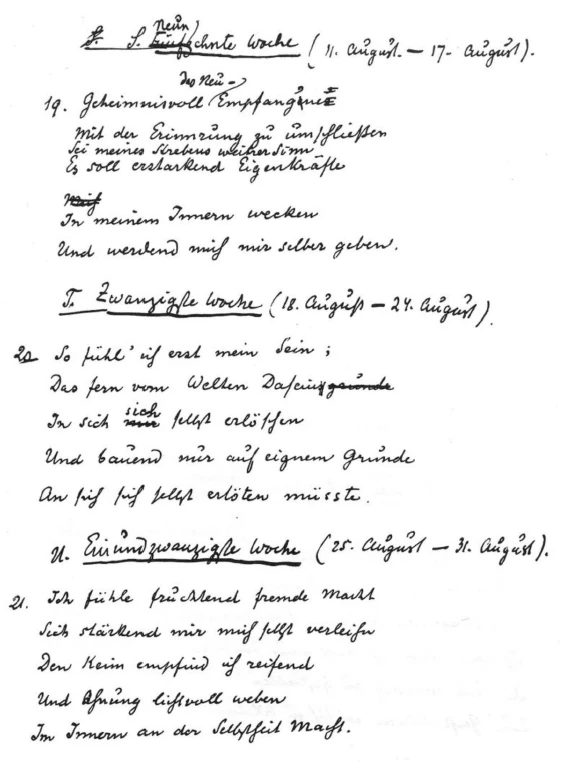 Neun
S. zehnte Woche (11. August. — 17. August).
das Neu-
19. Geheimnisvoll Empfangne
Mit der Erinnrung zu umschließen
Sei meines Strebens weitrer Sinn
Es soll erstarkend Eigenkräfte
In meinem Innern wecken
Und werdend mich mir selber geben.
T. Zwanzigste Woche (18. August — 24. August).
20 So fühl' ich erst mein Sein;
Das fern vom Welten Dasein
sich
In sich selbst erlöschen
Und bauend nur auf eignem Grunde
An sich sich selbst ertöten müsste.
U. Einundzwanzigste Woche (25. August — 31. August).
21. Ich fühle fruchtend fremde Macht
Sich stärkend mir mich selbst verleihn
Den Keim empfind ich reifend
Und Ahnung lichtvoll weben
Im Innern an der Selbstheit Macht.